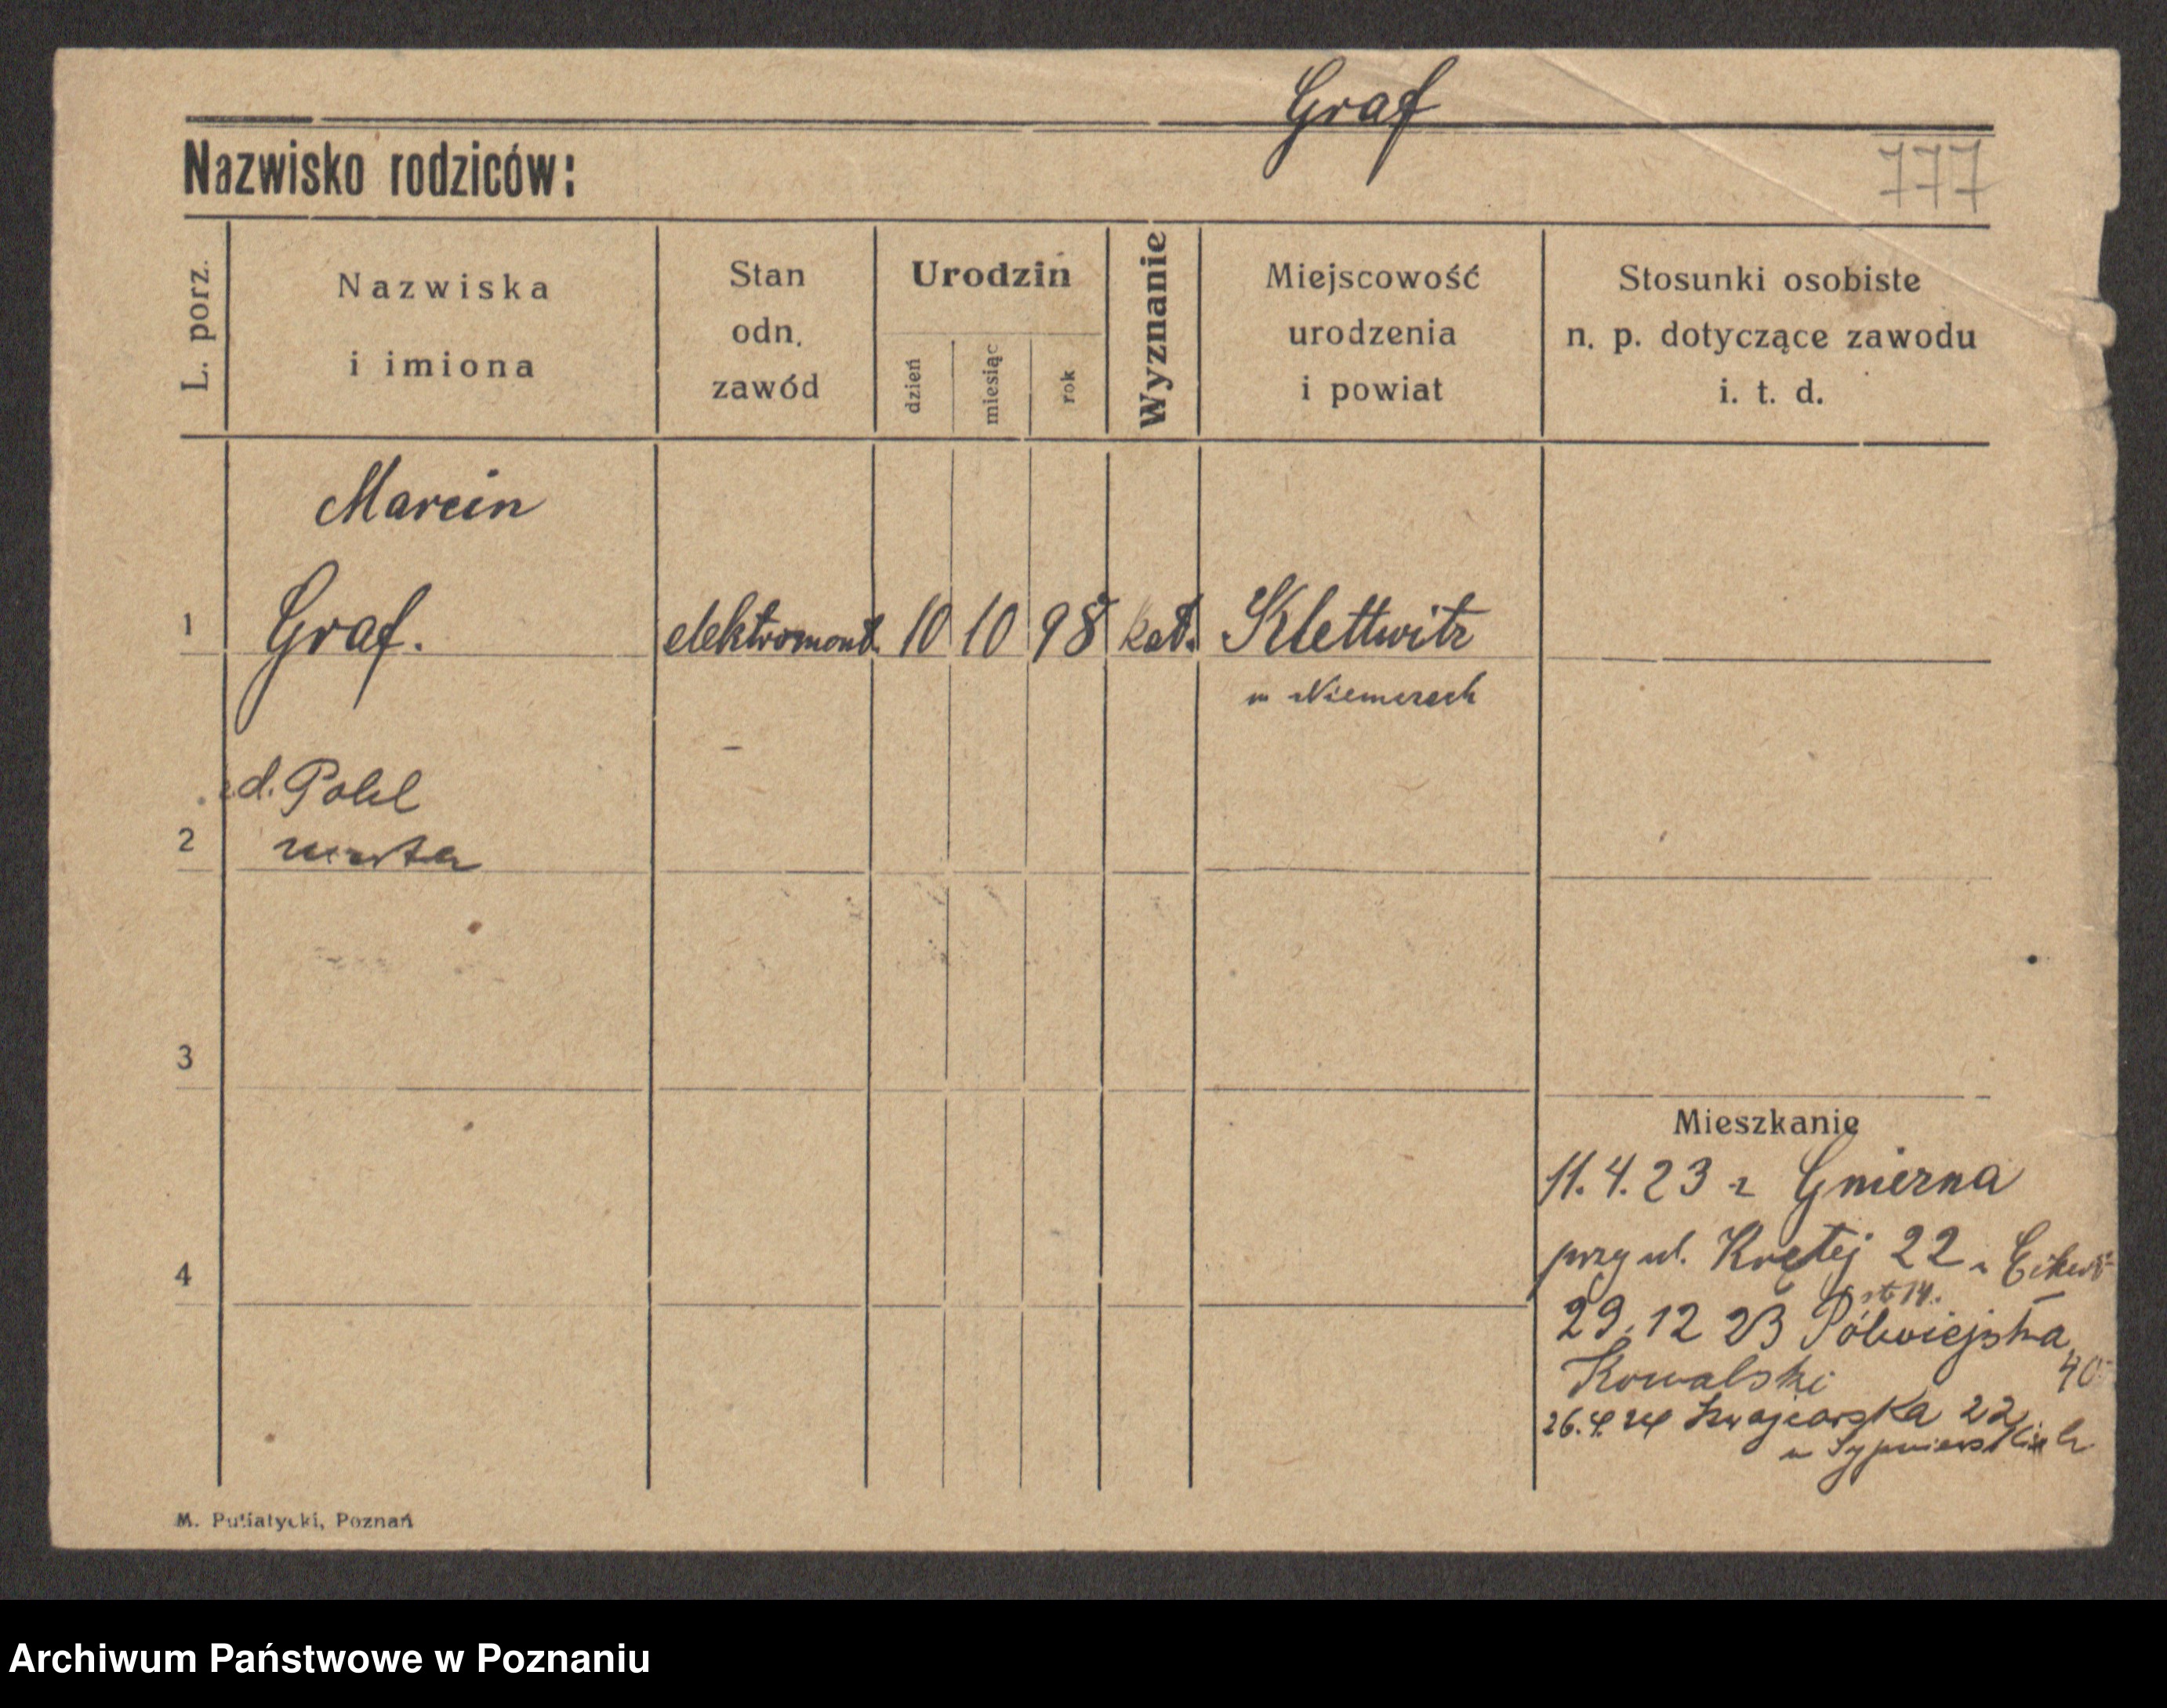 Graf
Nazwisko rodziców:
777
L. porz.
Nazwiska
i imiona
Stan
odn.
zawód
Urodzin
dzień
miesiąc
rok
Wyznanie
Miejscowość
urodzenia
i powiat
Stosunki osobiste
n. p. dotyczące zawodu
i. t. d.
Marcin
1 Graf. elektromont. 10 10 98 kat. Klettwitz
w Niemczech
d. Pohl
2
3
Mieszkanie
11.4.23 z Gniezna
przy ul. Krętej 22
4
29.12 23 Półwiejska
40
Kowalski
26.4.24 Szwajcarska 22
M. Putiatycki, Poznań
Archiwum Państwowe w Poznaniu